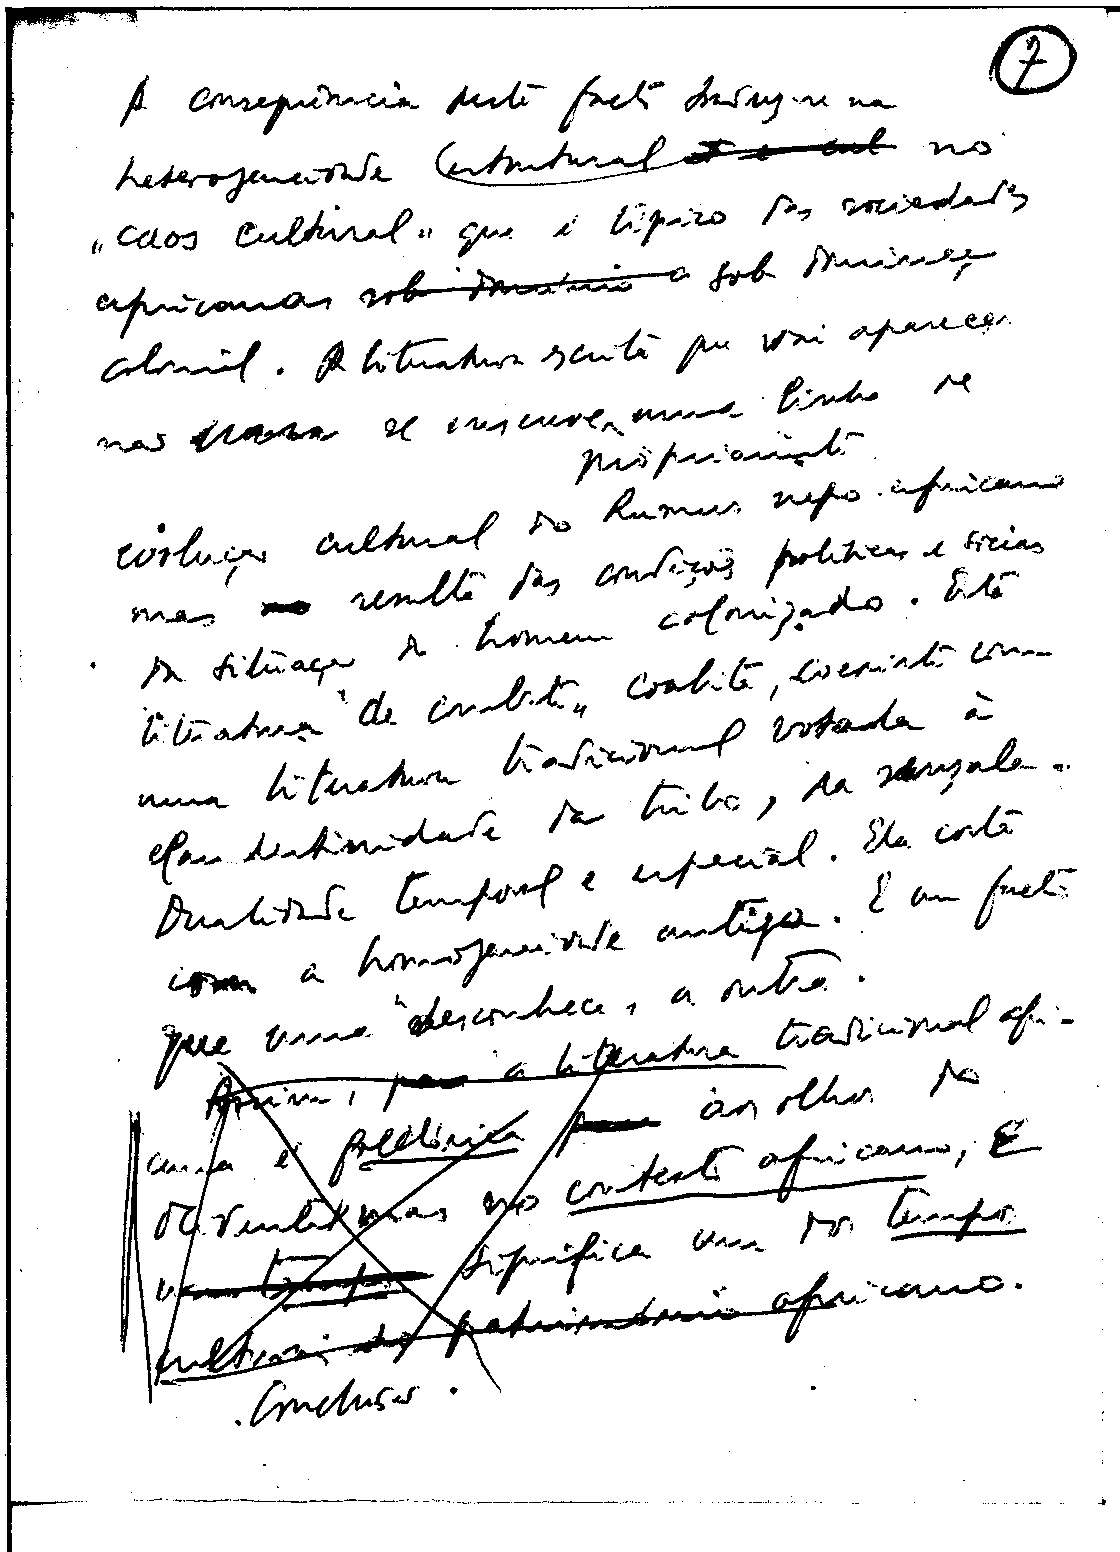 7
A consequência deste facto traduz-se na
heterogeneidade (estrutural no
"caos cultural" que é típico das sociedades
africanas sob domínio a sob dominação
colonial. A literatura escrita que vai aparecer
não se inscreve numa linha de
propriamente
evolução cultural do Humus negro-africano
mas resulta das condições políticas e sociais
da situação do homem colonizado. Esta
literatura "de combate" coabita, coexiste com
uma literatura tradicional votada à
clandestinidade da tribo, da senzala.
Dualidade temporal e espacial. Ela corta
com a homogeneidade antiga. É um facto
que uma "desconhece" a outra.
Assim, a literatura tradicional afri-
cana é aos olhos do
mas no contexto africano, E
significa um dos tempos
culturais do património africano.
. Conclusão .